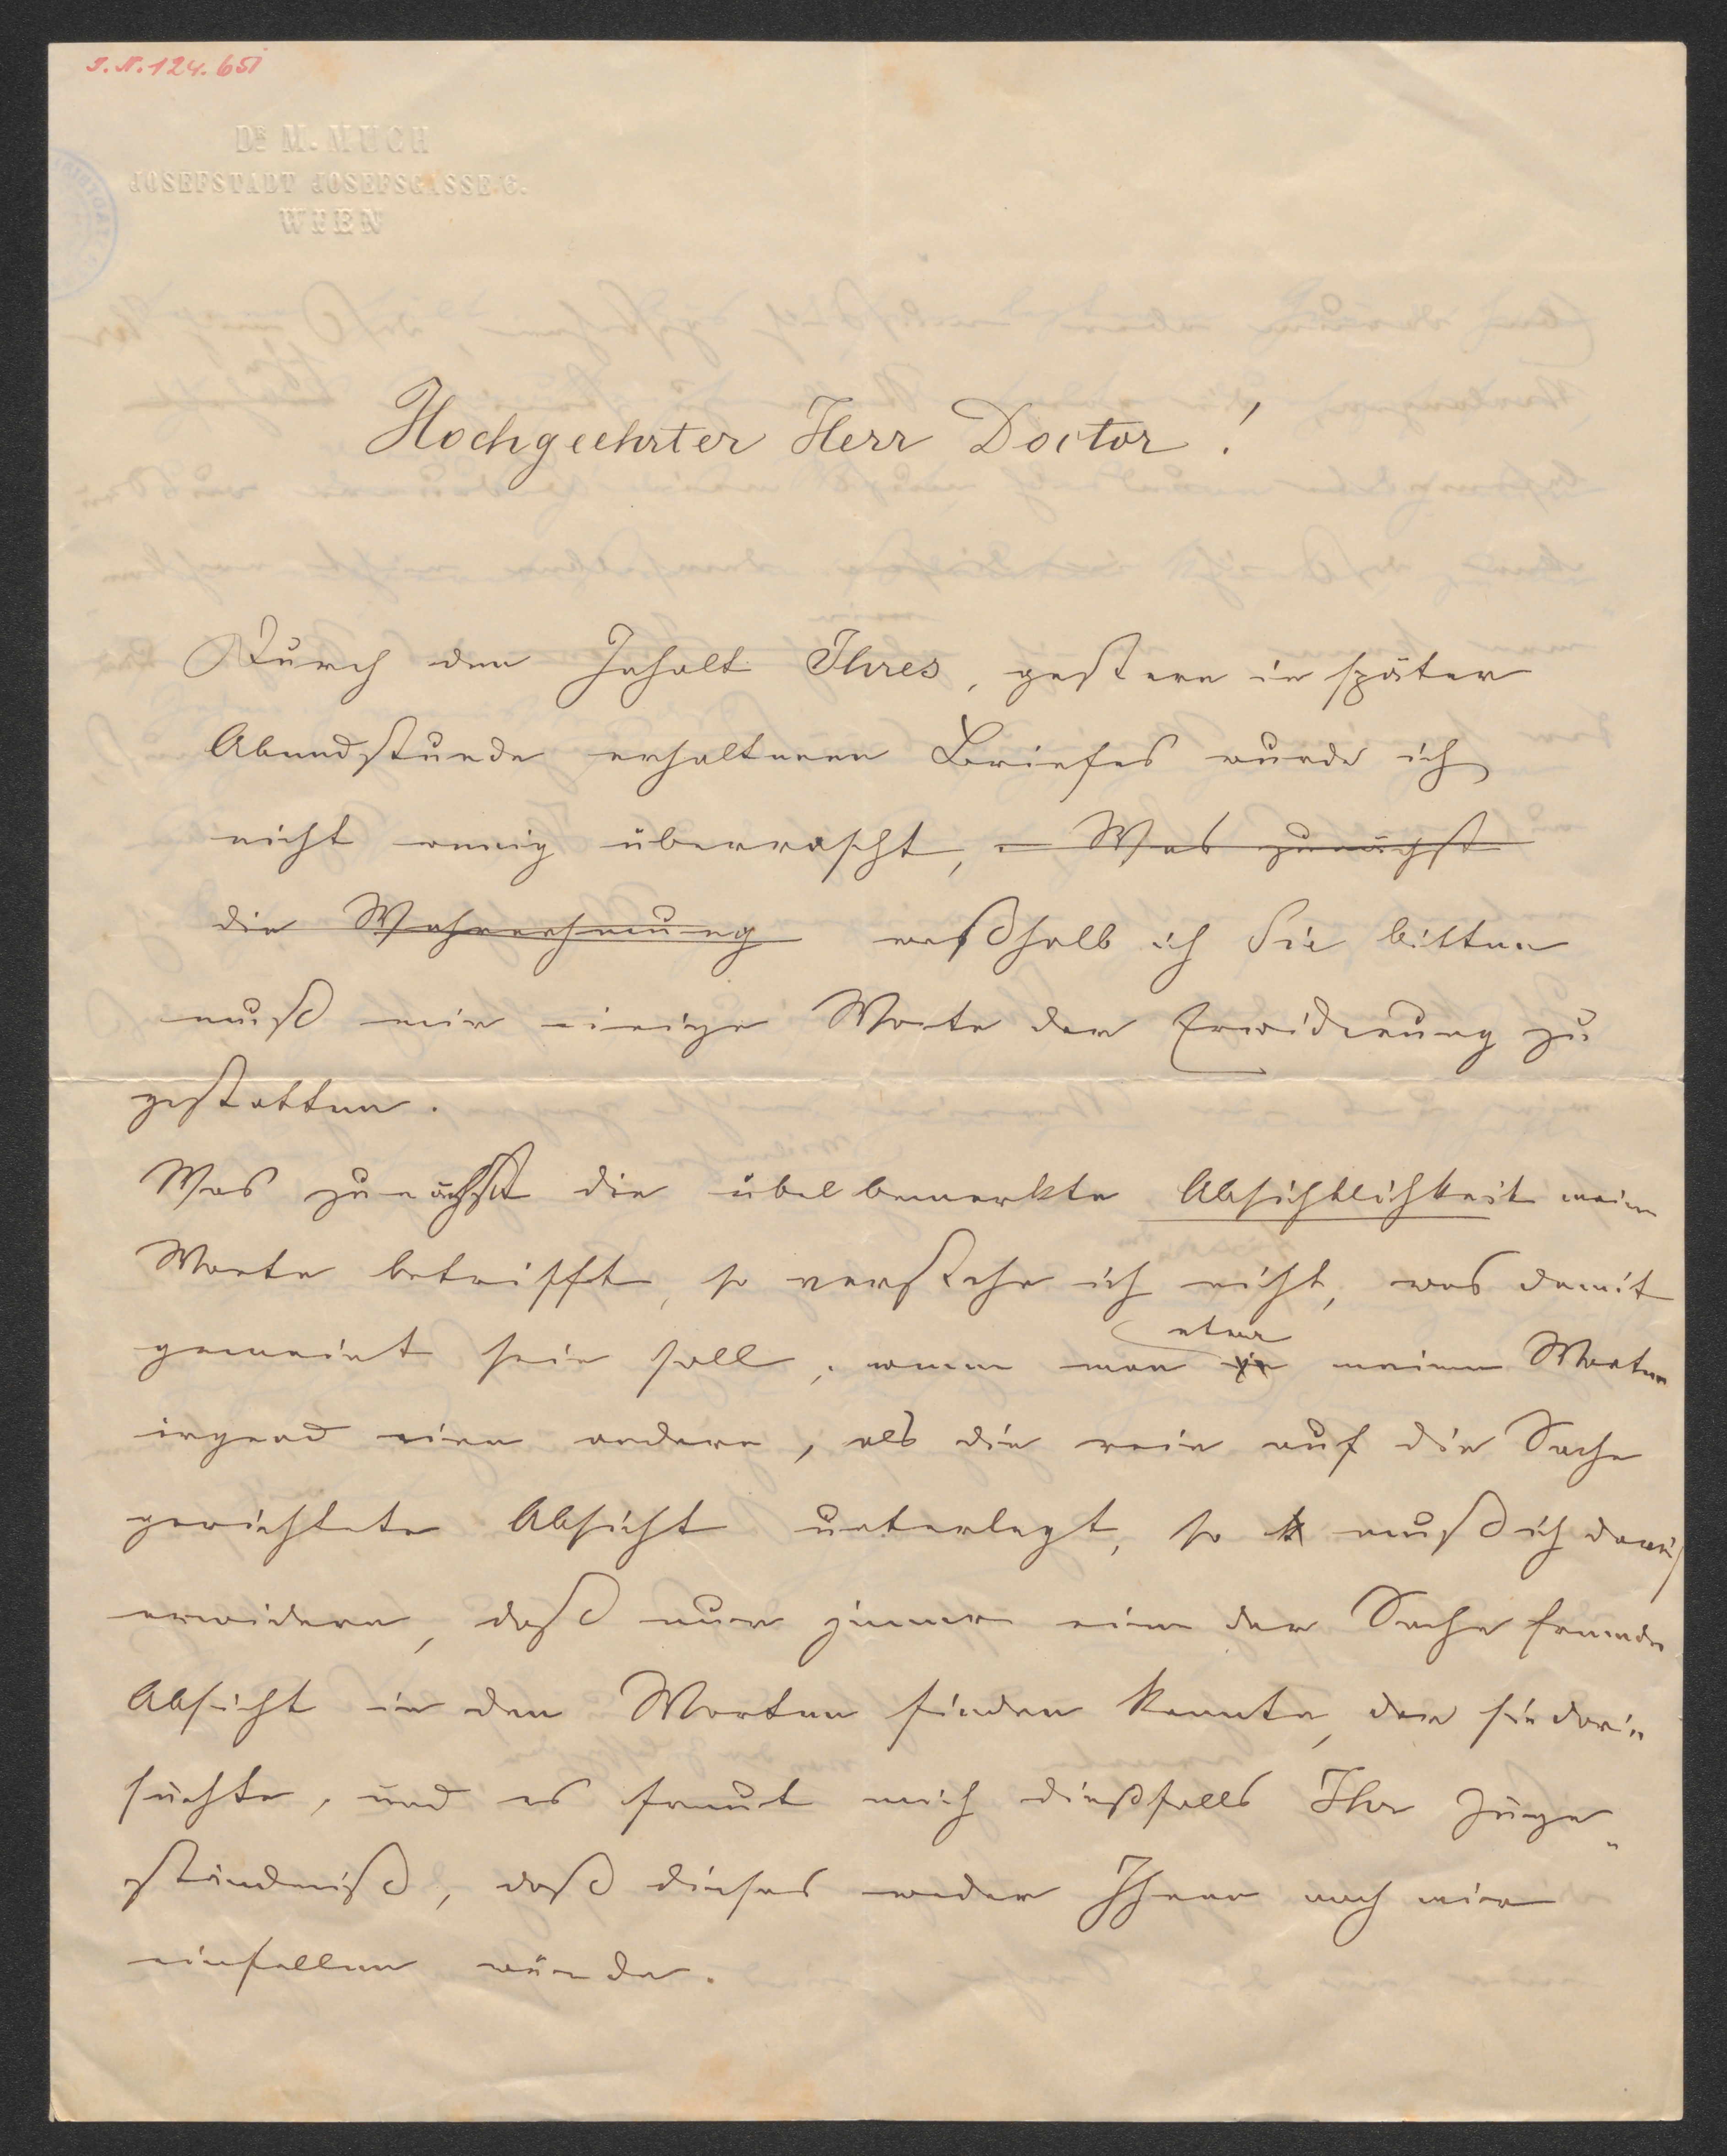 I.N. 124.651
DR M. MUCH
JOSEFSTADT JOSEFSGASSE 6.
WIEN
Hochgeehrter Herr Doctor!
Durch den Inhalt Ihres, gestern in später
Abendstunde erhaltenen Briefes wurde ich
nicht wenig überrascht, Was zunächst
die Wahrnehmung weßhalb ich Sie bitten
muß mir einige Worte der Erwiderung zu
gestatten.
Was zunächst die übelbemerkte Absichtlichkeit meiner
Worte betrifft, so verstehe ich nicht, was damit
gemeint sein soll, wenn man etwa meinen Worten
irgend eine andere, als die rein auf die Sache
gerichtete Absicht unterlegt, so muß ich darauf
erwidern, daß nur jener eine der Sache fremde
Absicht in den Worten finden konnte, der sie darin
suchte, und es freut mich dießfalls Ihr Zuge„
ständniß, daß dieses weder Ihnen noch mir
einfallen würde.